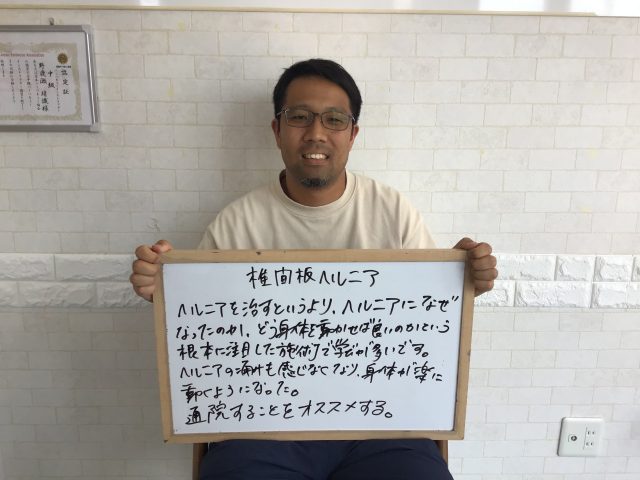 認定証
中級
椎間板ヘルニア
ヘルニアを治すというより、ヘルニアになぜ
なったのか、どう身体を動かせば良いのかという
根本に注目した施術で学びが多いです。
ヘルニアの痛みも感じなくなり、身体が楽に
動くようになった。
通院することをオススメする。